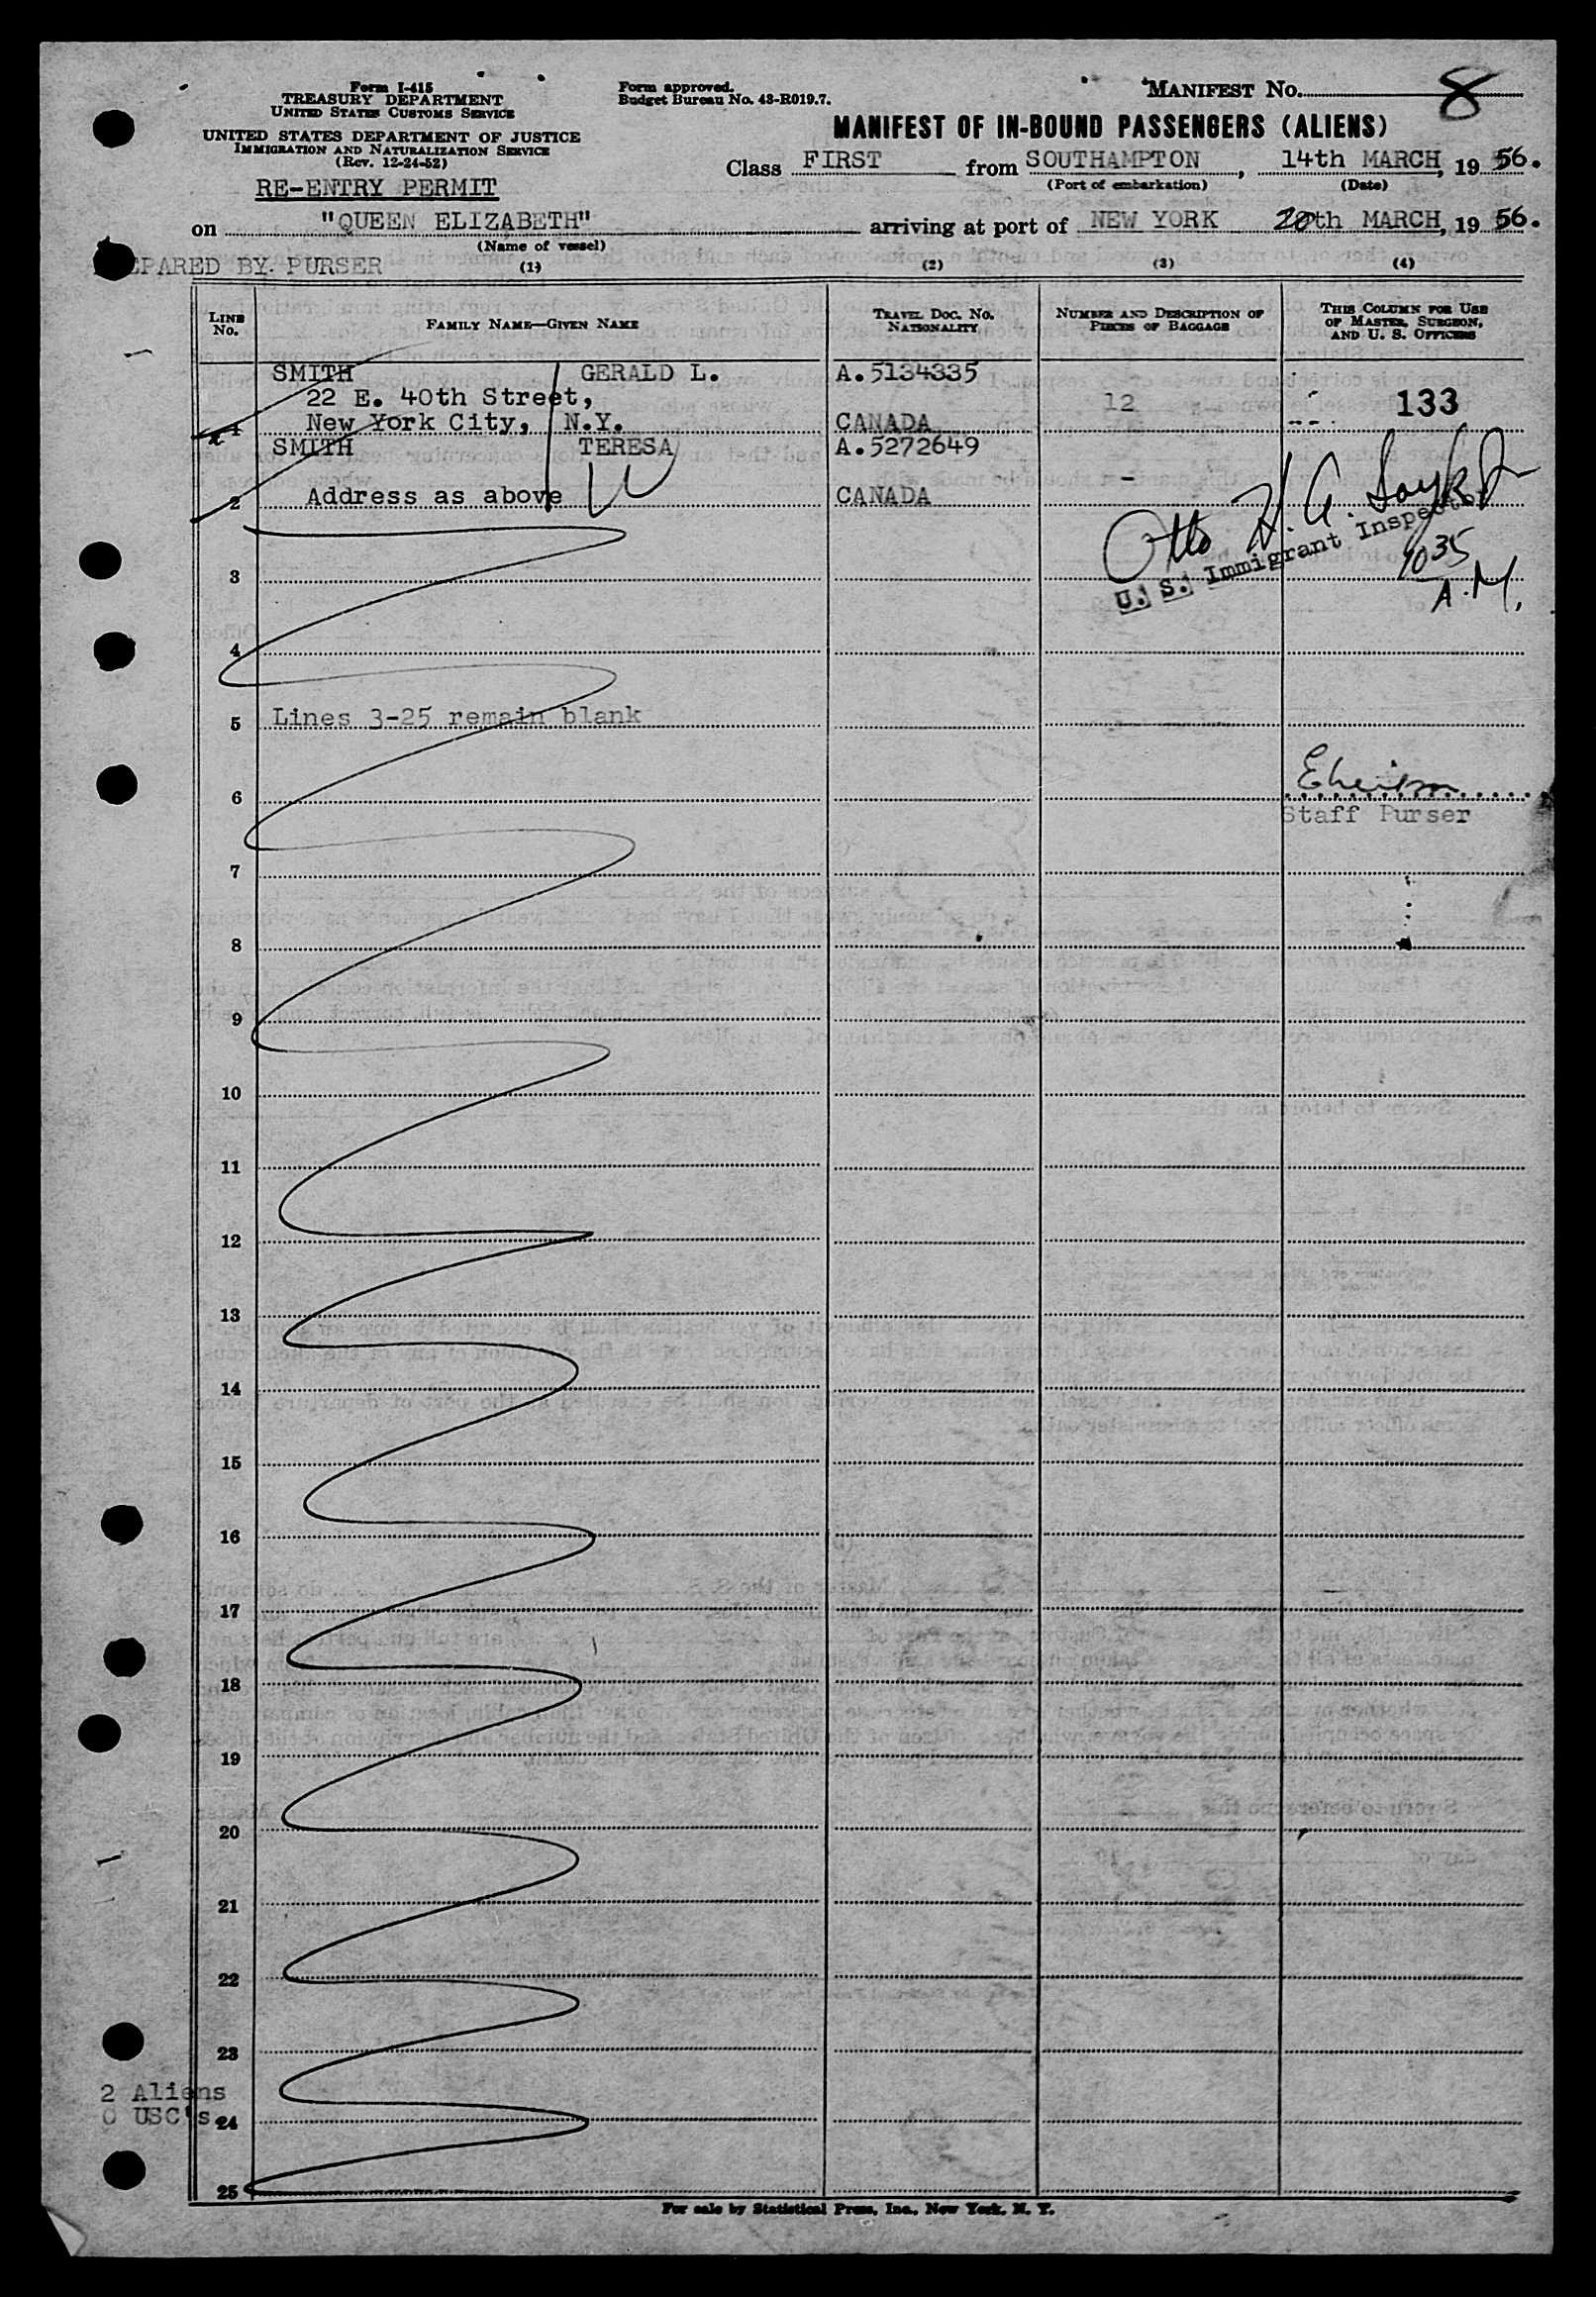 Form I-415
TREASURY DEPARTMENT
UNITED STATES CUSTOMS SERVICE
UNITED STATES DEPARTMENT OF JUSTICE
IMMIGRATION AND NATURALIZATION SERVICE
(Rev. 12-24-52)
RE-ENTRY PERMIT
Form approved.
Budget Bureau No. 43-R019.7.
MANIFEST No. 8
MANIFEST OF IN-BOUND PASSENGERS (ALIENS)
Class FIRST from SOUTHAMPTON, 14th MARCH, 19 56.
(Port of embarkation) (Date)
on "QUEEN ELIZABETH" arriving at port of NEW YORK 20th MARCH, 19 56.
(Name of vessel)
PARED BY. PURSER (1) (2) (3) (4)
LINE No. FAMILY NAME—GIVEN NAME TRAVEL DOC. NO. NATIONALITY NUMBER AND DESCRIPTION OF PIECES OF BAGGAGE THIS COLUMN FOR USE OF MASTER, SURGEON, AND U. S. OFFICERS
SMITH GERALD L. A.5134335
22 E. 40th Street,
1 New York City, N.Y. CANADA 12 133
SMITH TERESA A.5272649
2 Address as above CANADA -
Otto H. A.
U. S. Immigrant Inspector
1035
A.M.
3
4
5 Lines 3-25 remain blank
6
Staff Purser
7
8
9
10
11
12
13
14
15
16
17
18
19
20
21
22
23
2 Aliens
0 USC's 24
25
For sale by Statistical Press, Inc., New York, N. Y.